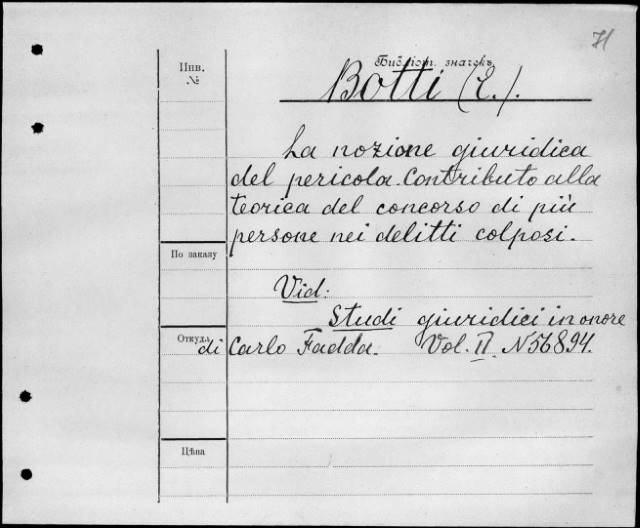 71
Инв.
№
Библіот. значекъ
Botti (E.).
La nozione giuridica
del pericola. Contributo alla
teorica del concorso di più
persone nei delitti colposi.
По заказу
Vid:
Studi giuridici in onore
Откуда
di Carlo Fadda. Vol. II. N56894.
Цѣна